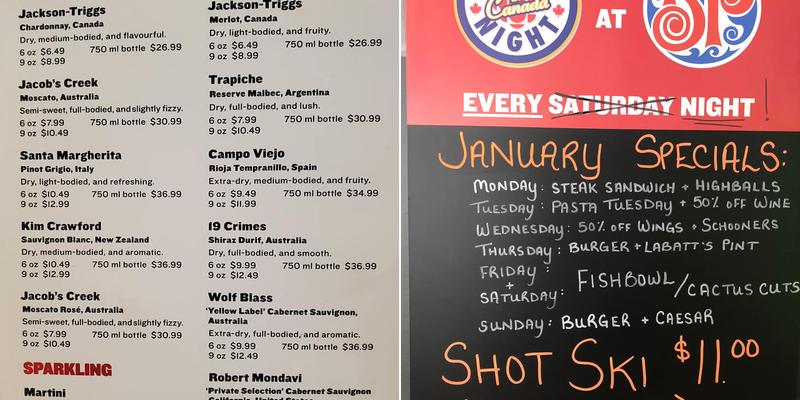 Jackson-Triggs
Chardonnay, Canada
Dry, medium-bodied, and flavourful.
6 oz $6.49 750 ml bottle $26.99
9 oz $8.99
Jacob's Creek
Moscato, Australia
Semi-sweet, full-bodied, and slightly fizzy.
6 oz $7.99 750 ml bottle $30.99
9 oz $10.49
Santa Margherita
Pinot Grigio, Italy
Dry, light-bodied, and refreshing.
6 oz $10.49 750 ml bottle $36.99
9 oz $12.99
Kim Crawford
Sauvignon Blanc, New Zealand
Dry, medium-bodied, and aromatic.
6 oz $10.49 750 ml bottle $36.99
9 oz $12.99
Jacob's Creek
Moscato Rosé, Australia
Semi-sweet, full-bodied, and slightly fizzy.
6 oz $7.99 750 ml bottle $30.99
9 oz $10.49
SPARKLING
Martini
Jackson-Triggs
Merlot, Canada
Dry, light-bodied, and fruity.
6 oz $6.49 750 ml bottle $26.99
9 oz $8.99
Trapiche
Reserve Malbec, Argentina
Dry, full-bodied, and lush.
6 oz $7.99 750 ml bottle $30.99
9 oz $10.49
Campo Viejo
Rioja Tempranillo, Spain
Extra-dry, medium-bodied, and fruity.
6 oz $9.49 750 ml bottle $34.99
9 oz $11.99
19 Crimes
Shiraz Durif, Australia
Dry, full-bodied, and smooth.
6 oz $9.99 750 ml bottle $36.99
9 oz $12.49
Wolf Blass
'Yellow Label' Cabernet Sauvignon,
Australia
Extra-dry, full-bodied, and aromatic.
6 oz $9.99 750 ml bottle $36.99
9 oz $12.49
Robert Mondavi
'Private Selection' Cabernet Sauvignon
California, United States
Canada
NIGHT
AT
BP
EVERY SATURDAY NIGHT!
JANUARY SPECIALS:
MONDAY: STEAK SANDWICH + HIGHBALLS
TUESDAY: PASTA TUESDAY + 50% OFF WINE
WEDNESDAY: 50% OFF WINGS + SCHOONERS
THURSDAY: BURGER + LABATT'S PINT
FRIDAY :
+
SATURDAY: FISHBOWL/CACTUS CUTS
SUNDAY: BURGER + CAESAR
SHOT SKI $11.00